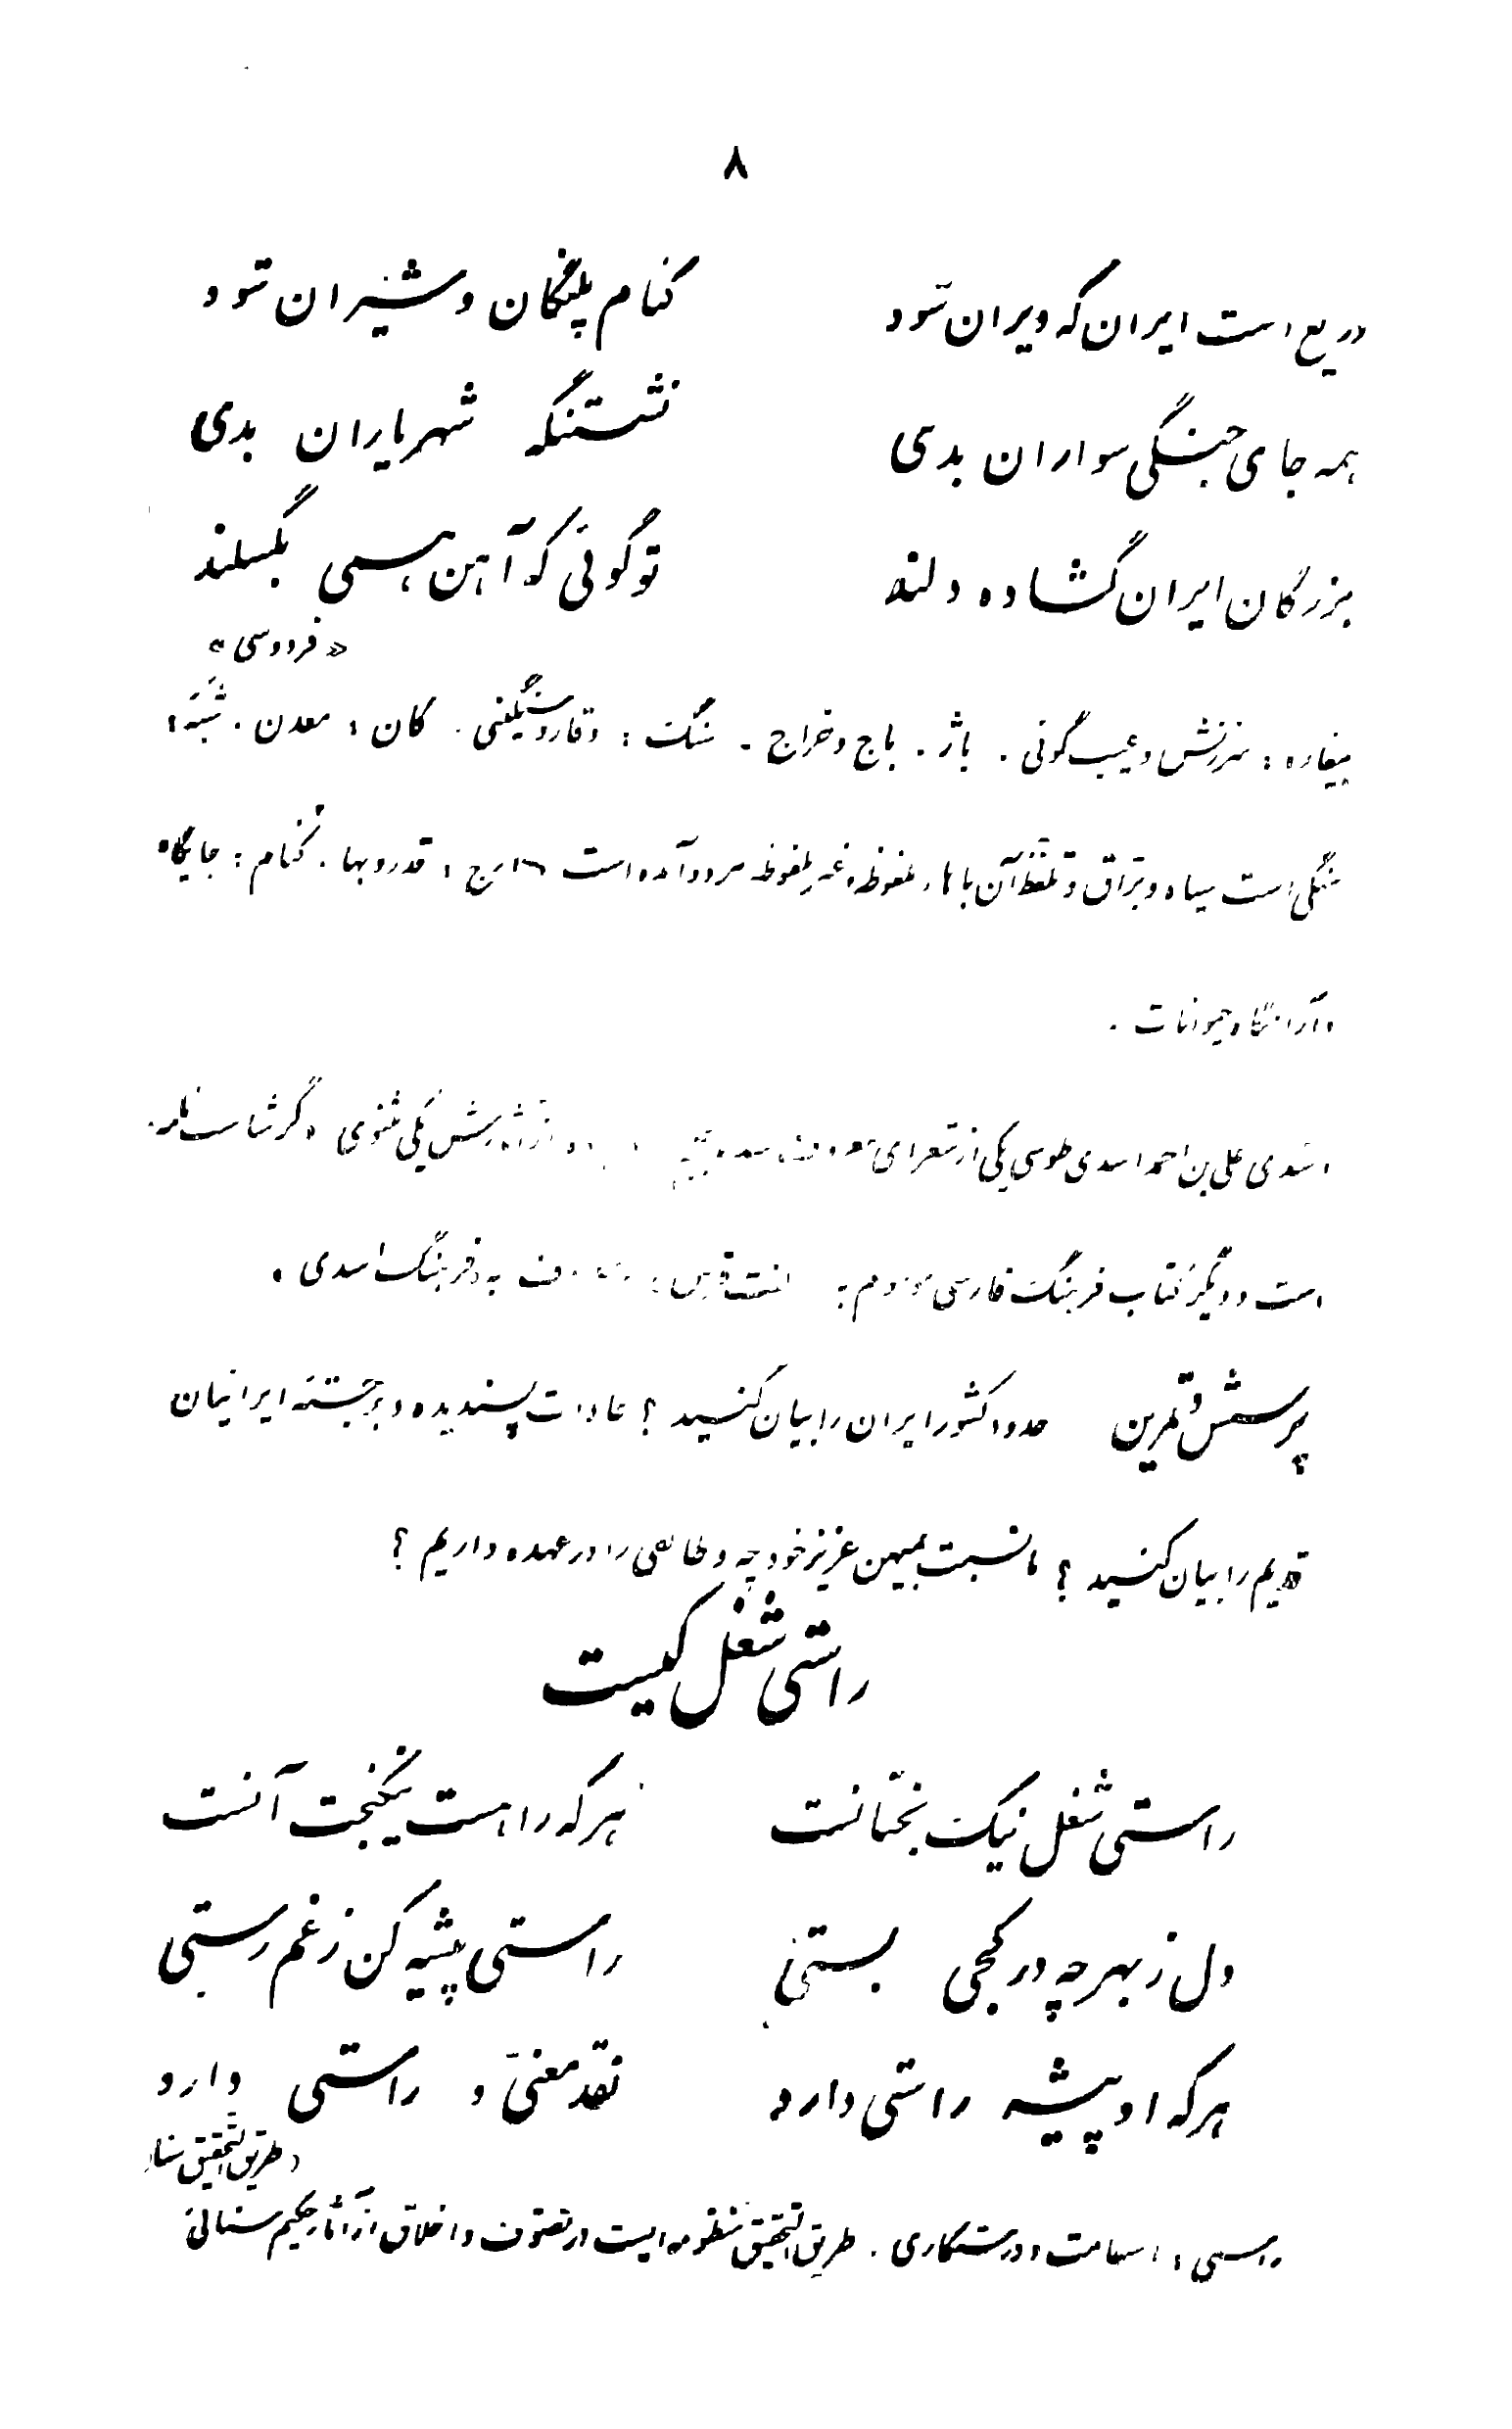 ۸
دریغ است ایران که ویران شود کنام پلنگان و شیران شود
همه جای جنگی سواران بدی نشستنگه شهریاران بدی
بزرگان ایران گشاده دلند تو گوئی که آهن همی بگسلند
«فردوسی»
بیغاره : سرزنش و عیب گوئی . باژ . باج و خراج . سنگ : وقار و سنگینی . کان : معدن . شبه :
سنگی است سیاه و براق و تلفظ آن با هاء ملفوظ و غیر ملفوظ هر دو آمده است ارج : قدر و بها . کنام : جایگاه
و آرامگاه حیوانات .
اسدی علی بن احمد اسدی طوسی یکی از شعرای معروف سده پنجم از آثارش یکی مثنوی «گرشاسب نامه»
است و دیگر کتاب فرهنگ فارسی موسوم به لغت فرس معروف به فرهنگ اسدی .
پرسش و تمرین حدود کشور ایران را بیان کنسید ؟ عادات پسندیده و برجسته ایرانیان
قدیم را بیان کنسید ؟ ما نسبت بمیهن عزیز خود چه وظائفی را در عهده داریم ؟
راستی شغل کیست
راستی شغل نیک بختانست هر که را هست نیکبخت آنست
دل ز بهر چه در کجی بستی راستی پیشه کن ز غم رستی
هر که او پیشه راستی دارد نقد معنی و راستی دارد
«طریق التحقیق سنا
راستی : استقامت و درستکاری . طریق التحقیق منظومه ایست در تصوف و اخلاق از آثار حکیم سنائی